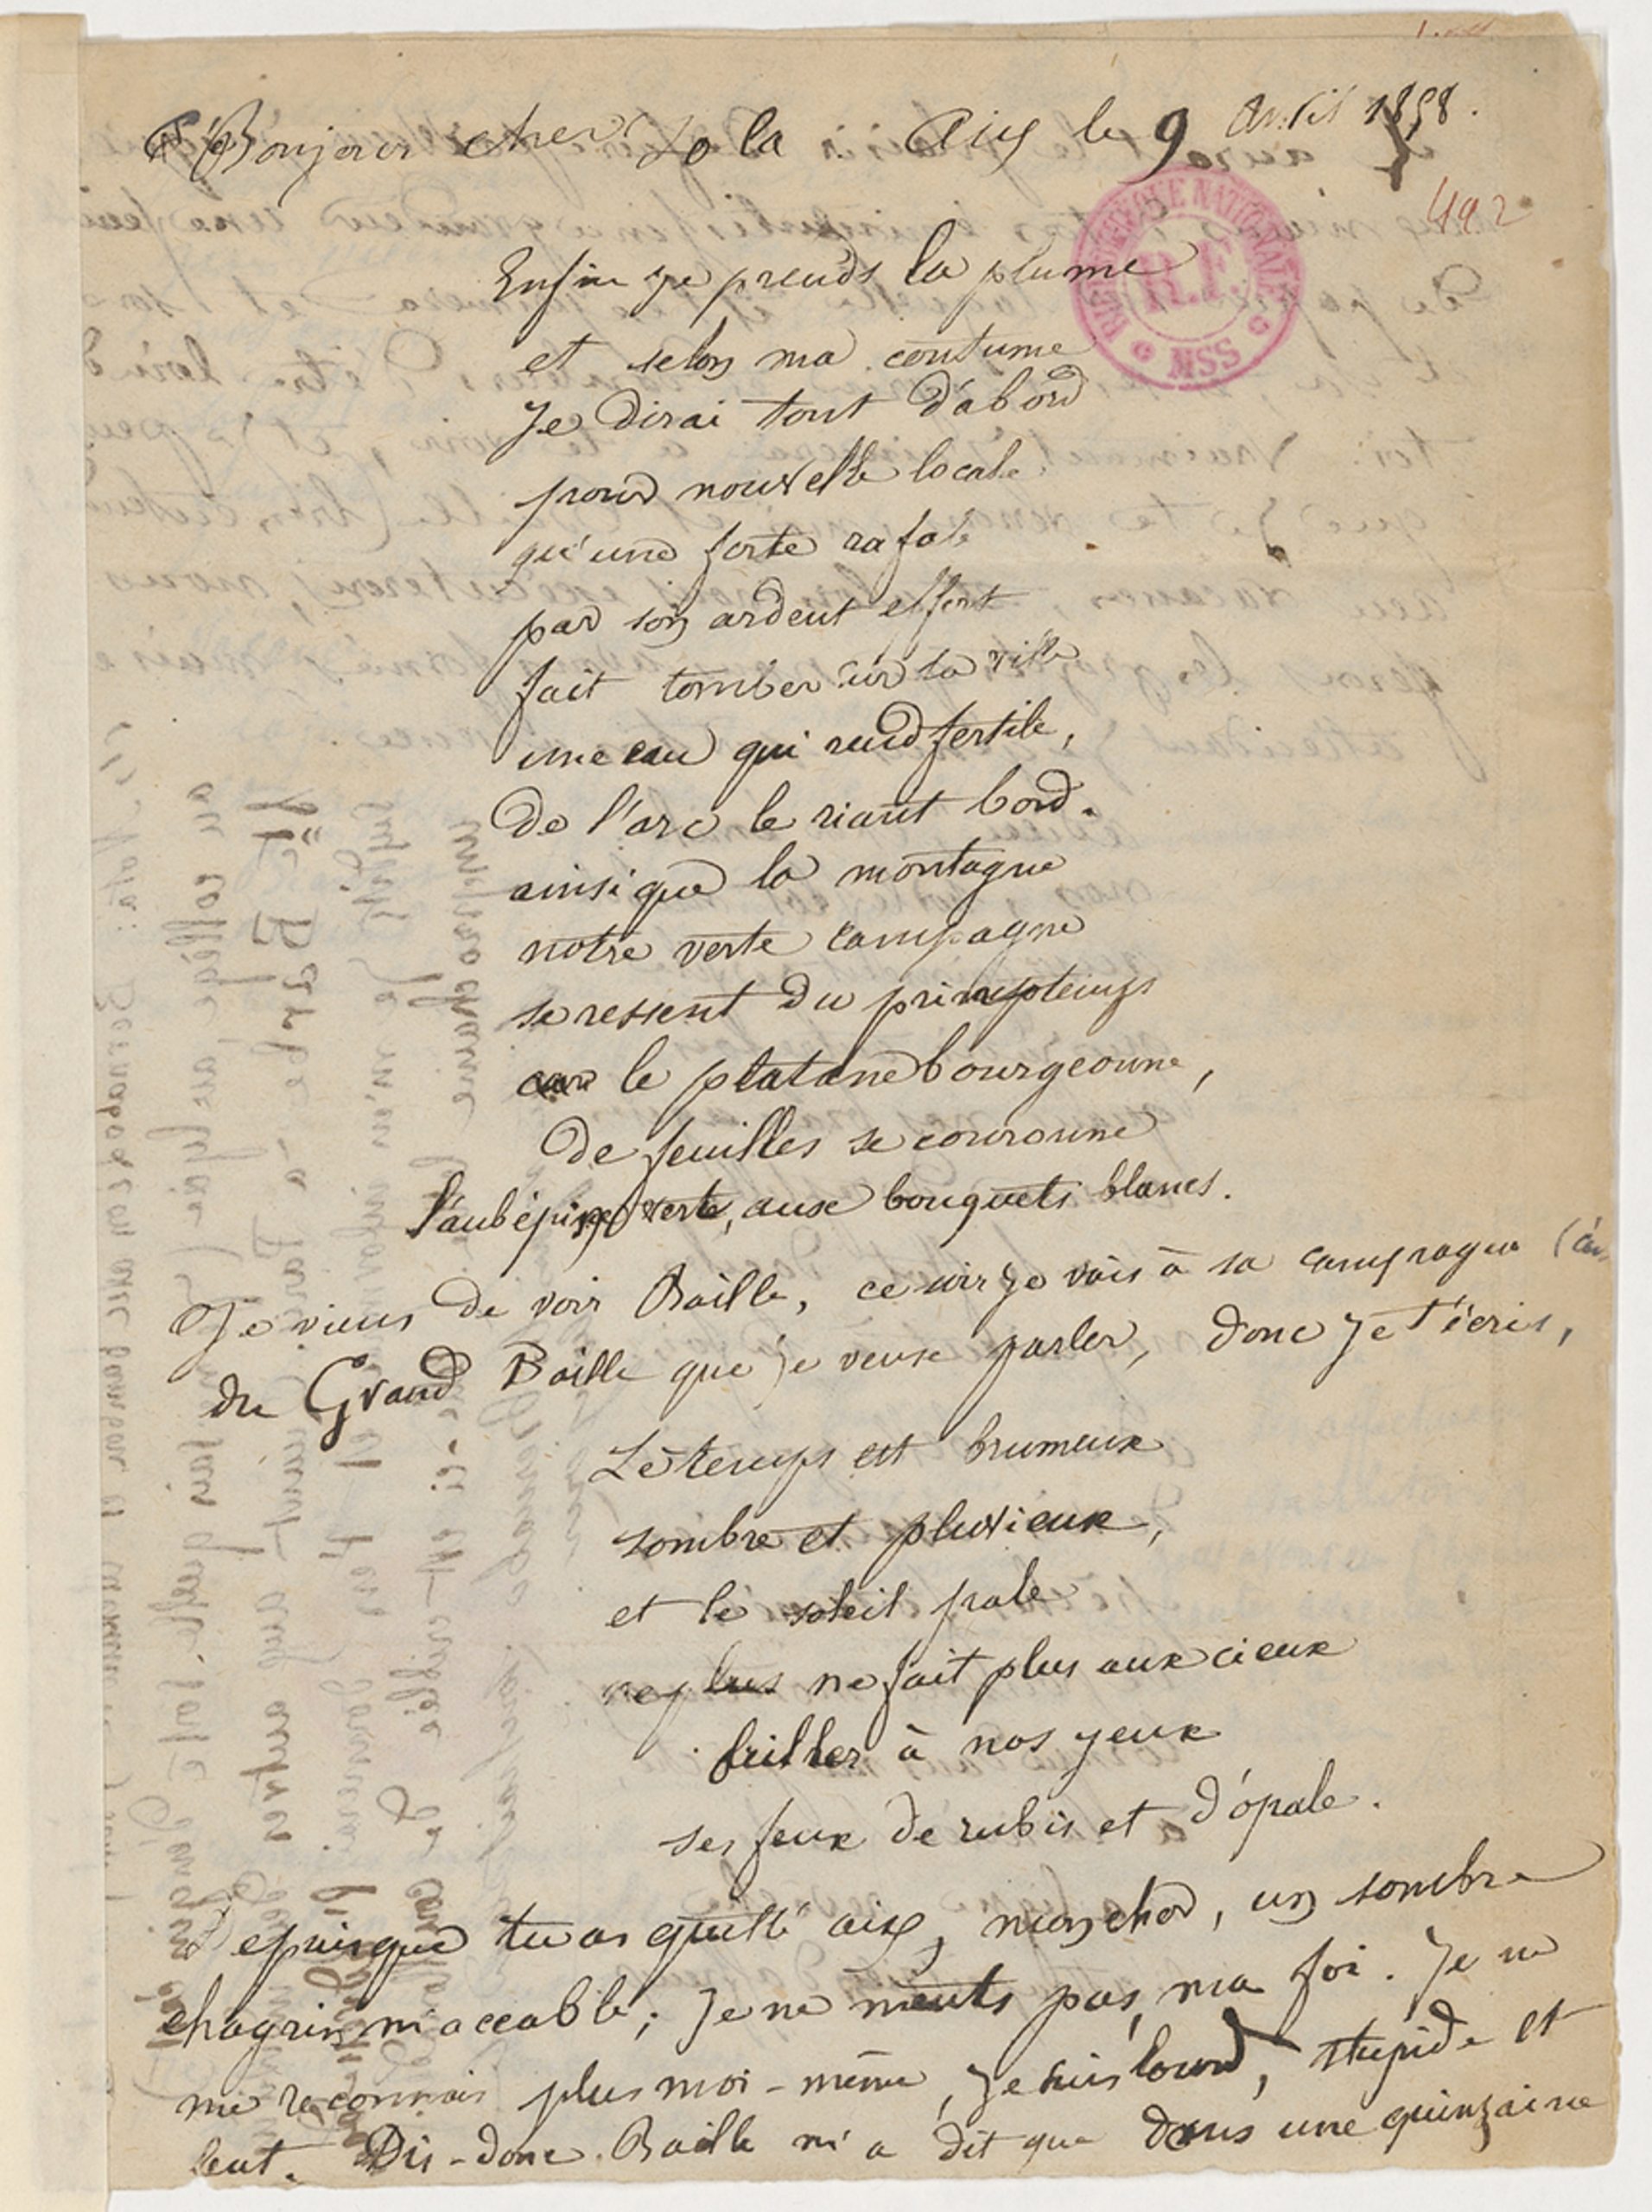 Bonjour cher Zola. Aix le 9 Avril 1858.
492
BIBLIOTHEQUE NATIONALE R.F. MSS
Enfin je prends la plume
et selon ma coutume
Je dirai tout d'abord
pour nouvelle locale
qu'une forte rafale
par son ardent effort
fait tomber sur la ville
une eau qui rend fertile,
De l'arc le riant bord.
ainsi que la montagne
notre verte campagne
se ressent du printemps
le platane bourgeonne,
De feuilles se couronne
l'aubépine verte, aux bouquets blancs.
Je viens de voir Baille, ce soir je vais à sa campagne (c'est
du Grand Baille que je veux parler, donc je t'écris,
Le temps est brumeux
sombre et pluvieux,
et le soleil pale
ne plus ne fait plus aux cieux
briller à nos yeux
ses feux de rubis et d'opale.
Depuis que tu as quitté aix, mon cher, un sombre
chagrin m'accable; je ne ments pas, ma foi. Je ne
me reconnais plus moi-même, je suis lourd, stupide et
lent. Dis-donc Baille m'a dit que dans une quinzaine